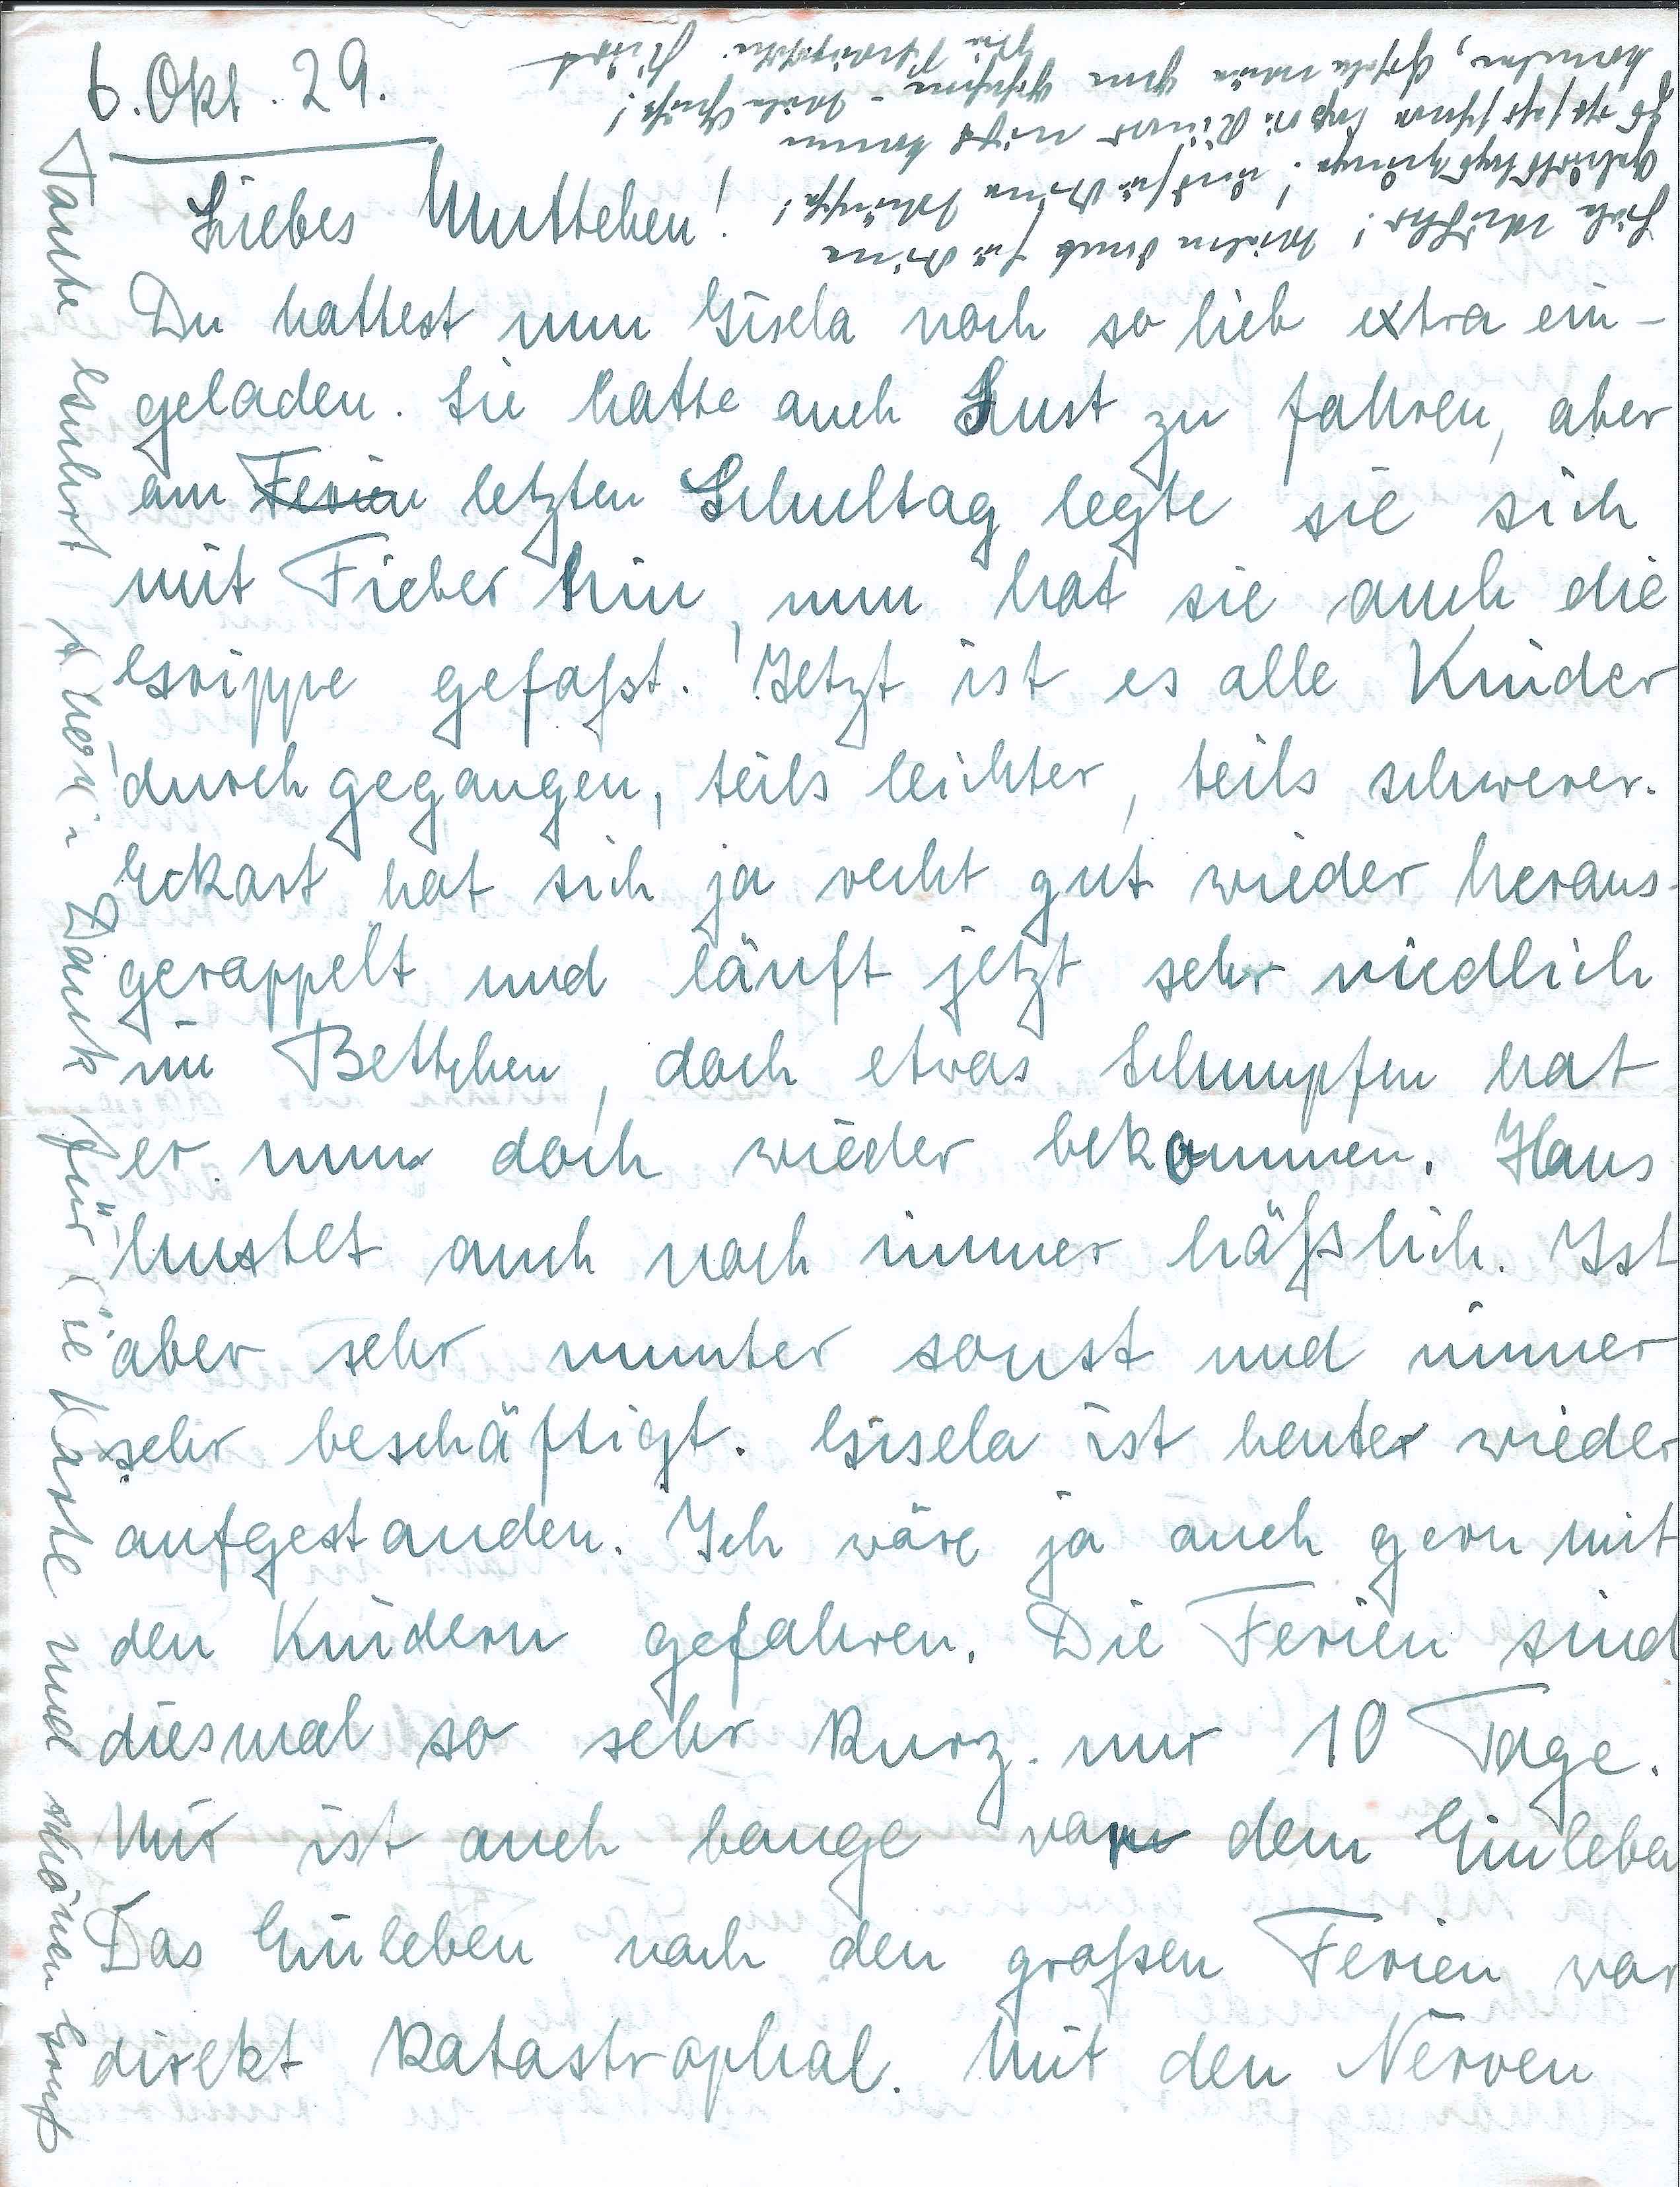 6. Okt. 29.
Liebes Muttchen!
Du hattest nun Gisela noch so lieb extra ein-
geladen. Sie hatte auch Lust zu fahren, aber
am Ferien letzten Schultag legte sie sich
mit Fieber hin, nun hat sie auch die
Grippe gefaßt. Jetzt ist es alle Kinder
durchgegangen, teils leichter, teils schwerer.
Eckart hat sich ja recht gut wieder heraus-
gerappelt und läuft jetzt sehr niedlich
im Bettchen, doch etwas Schnupfen hat
er nun doch wieder bekommen. Hans
hustet auch noch immer häßlich. Ist
aber sehr munter sonst und immer
sehr beschäftigt. Gisela ist heute wieder
aufgestanden. Ich wäre ja auch gern mit
den Kindern gefahren. Die Ferien sind
diesmal so sehr kurz. nur 10 Tage.
Mir ist auch bange vor dem Einleben
Das Einleben nach den großen Ferien war
direkt katastrophal. Mit den Nerven
Tante Gertrud schönen Dank für die Karte und schönen Gruß
Liebe Mutter! Vielen Dank für Deine
Geburtstagsgrüße! und für Deine
Es ist sehr schade daß die Kinder nicht kommen
konnten, Gisela wäre gern gefahren - Viele Grüße!